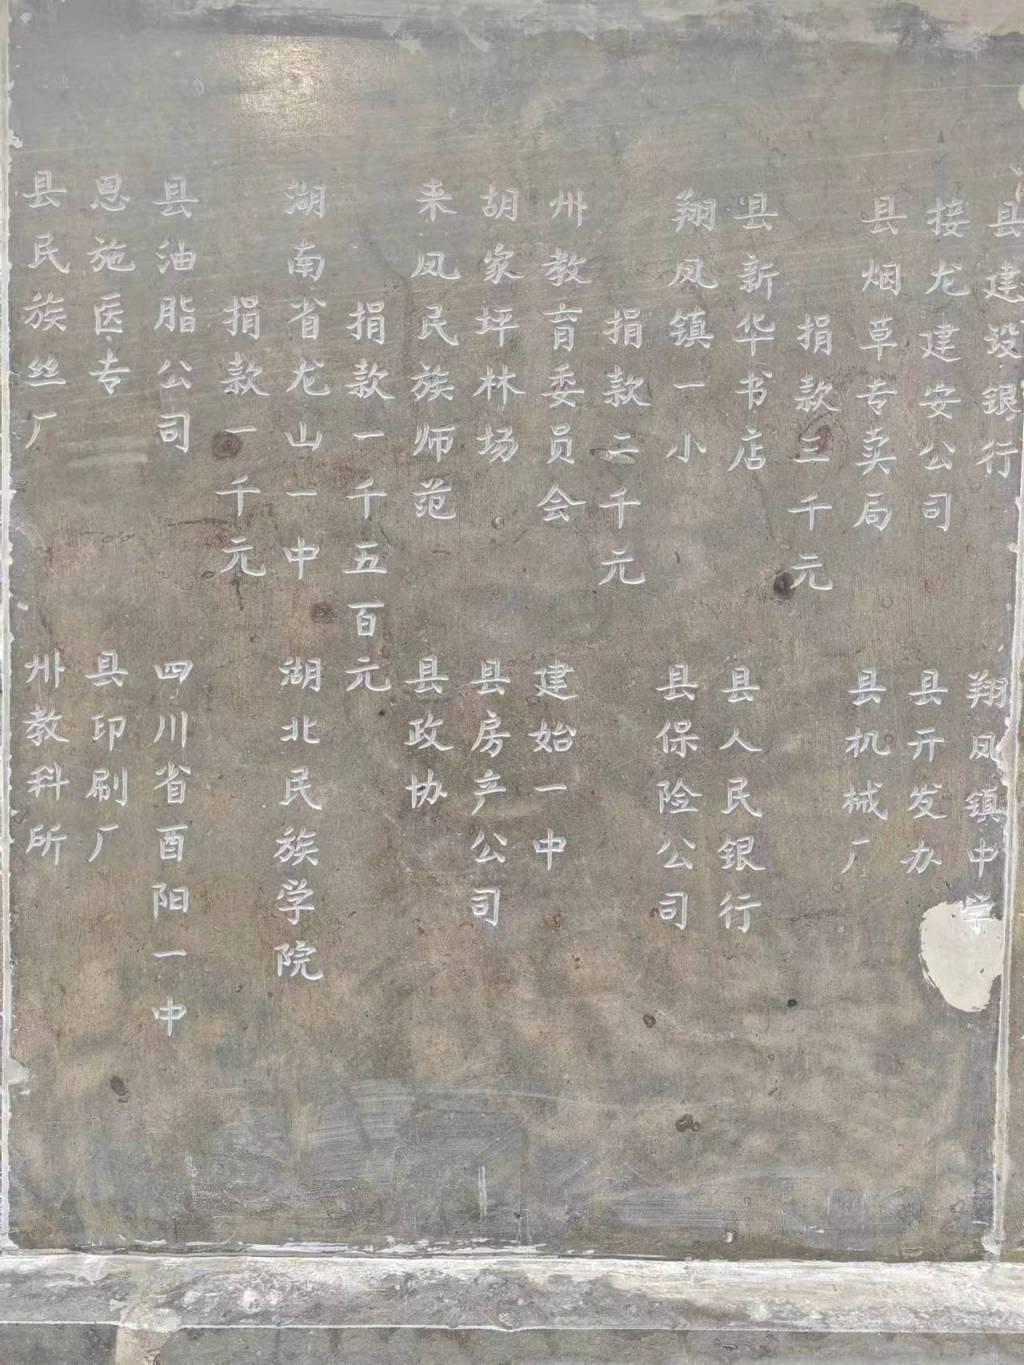 县建设银行 翔凤镇中学
接龙建安公司 县开发办
县烟草专卖局 县机械厂
捐款三千元
县新华书店 县人民银行
翔凤镇一小 县保险公司
捐款二千元
州教育委员会 建始一中
胡家坪林场 县房产公司
来凤民族师范 县政协
捐款一千五百元
湖南省龙山一中 湖北民族学院
捐款一千元
县油脂公司 四川省酉阳一中
恩施医专 县印刷厂
县民族丝厂 州教科所